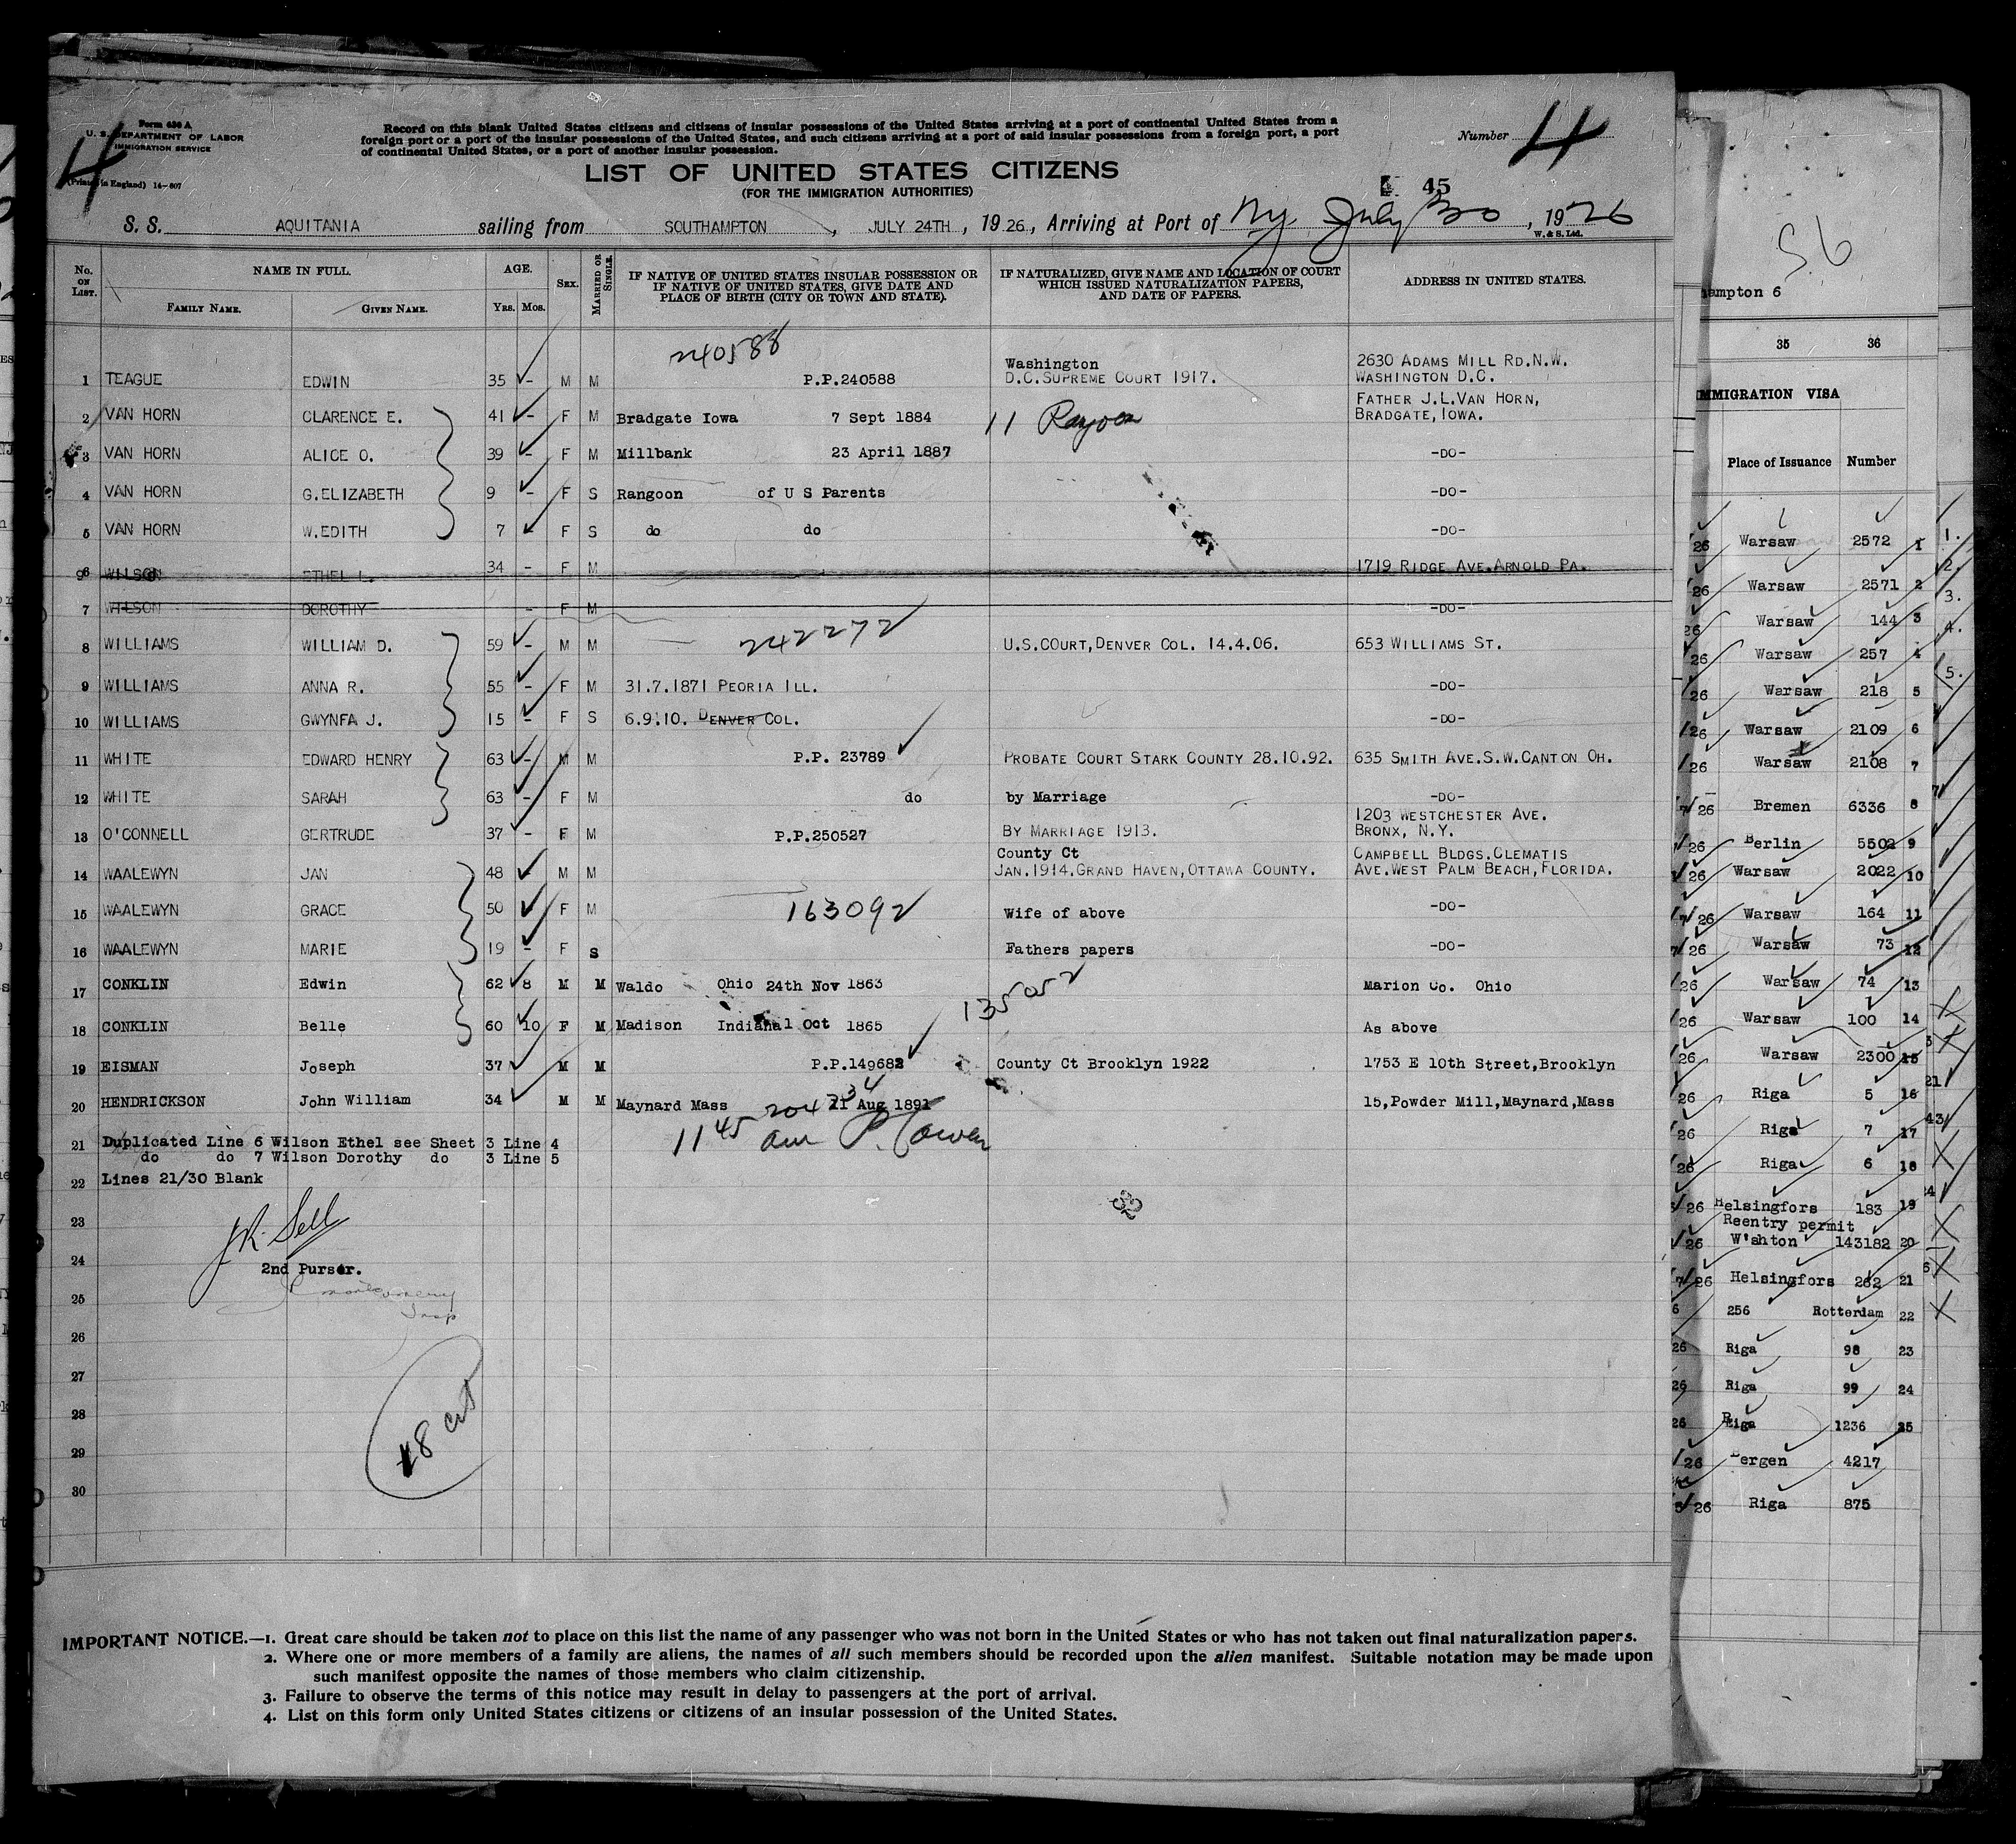 Form 630 A
U. S. DEPARTMENT OF LABOR
IMMIGRATION SERVICE
(Printed in England) 14-807
4
Record on this blank United States citizens and citizens of insular possessions of the United States arriving at a port of continental United States from a
foreign port or a port of the insular possessions of the United States, and such citizens arriving at a port of said insular possessions from a foreign port, a port
of continental United States, or a port of another insular possession.
Number 4
LIST OF UNITED STATES CITIZENS
(FOR THE IMMIGRATION AUTHORITIES)
45
S. S. AQUITANIA sailing from SOUTHAMPTON, JULY 24TH, 1926, Arriving at Port of NY July 30, 1926
W. & S. Ltd.
No. ON LIST. NAME IN FULL. AGE. SEX. MARRIED OR SINGLE. IF NATIVE OF UNITED STATES INSULAR POSSESSION OR IF NATIVE OF UNITED STATES, GIVE DATE AND PLACE OF BIRTH (CITY OR TOWN AND STATE). IF NATURALIZED, GIVE NAME AND LOCATION OF COURT WHICH ISSUED NATURALIZATION PAPERS, AND DATE OF PAPERS. ADDRESS IN UNITED STATES.
FAMILY NAME. GIVEN NAME. Yrs. Mos.
240588
Washington 2630 ADAMS MILL RD.N.W.
1 TEAGUE EDWIN 35 - M M P.P.240588 D.C.SUPREME COURT 1917. WASHINGTON D.C.
FATHER J.L.VAN HORN,
2 VAN HORN CLARENCE E. 41 - F M Bradgate Iowa 7 Sept 1884 11 BRADGATE, IOWA.
3 VAN HORN ALICE O. 39 - F M Millbank 23 April 1887 -DO-
4 VAN HORN G.ELIZABETH 9 - F S Rangoon of U S Parents -DO-
5 VAN HORN W.EDITH 7 F S do do -DO-
6 WILSON ETHEL L. 34 - F M 1719 RIDGE AVE.ARNOLD PA.
7 WILSON DOROTHY - F M -DO-
8 WILLIAMS WILLIAM D. 59 - M M 242272 U.S.COURT,DENVER COL. 14.4.06. 653 WILLIAMS ST.
9 WILLIAMS ANNA R. 55 - F M 31.7.1871 PEORIA ILL. -DO-
10 WILLIAMS GWYNFA J. 15 - F S 6.9.10. DENVER COL. -DO-
11 WHITE EDWARD HENRY 63 - M M P.P. 23789 PROBATE COURT STARK COUNTY 28.10.92. 635 SMITH AVE.S.W.CANTON OH.
12 WHITE SARAH 63 - F M do by Marriage -DO-
1203 WESTCHESTER AVE.
13 O'CONNELL GERTRUDE 37 - F M P.P.250527 BY MARRIAGE 1913. BRONX, N.Y.
County Ct CAMPBELL BLDGS.CLEMATIS
14 WAALEWYN JAN 48 M M JAN.1914.GRAND HAVEN,OTTAWA COUNTY. AVE.WEST PALM BEACH,FLORIDA.
15 WAALEWYN GRACE 50 F M 163092 Wife of above -DO-
16 WAALEWYN MARIE 19 - F S Fathers papers -DO-
17 CONKLIN Edwin 62 8 M M Waldo Ohio 24th Nov 1863 135052 Marion Co. Ohio
18 CONKLIN Belle 60 10 F M Madison Indiana 1 Oct 1865 As above
19 EISMAN Joseph 37 M M P.P.149682 County Ct Brooklyn 1922 1753 E 10th Street,Brooklyn
20 HENDRICKSON John William 34 M M Maynard Mass 21 Aug 1891 15,Powder Mill,Maynard,Mass
11 45 am
21 Duplicated Line 6 Wilson Ethel see Sheet 3 Line 4
do do 7 Wilson Dorothy do 3 Line 5
22 Lines 21/30 Blank
32
23
JR. Sell
24
2nd Purser.
25
26
27
28
18 cit
29
30
IMPORTANT NOTICE.—1. Great care should be taken not to place on this list the name of any passenger who was not born in the United States or who has not taken out final naturalization papers.
2. Where one or more members of a family are aliens, the names of all such members should be recorded upon the alien manifest. Suitable notation may be made upon
such manifest opposite the names of those members who claim citizenship.
3. Failure to observe the terms of this notice may result in delay to passengers at the port of arrival.
4. List on this form only United States citizens or citizens of an insular possession of the United States.
56
ampton 6
35 36
IMMIGRATION VISA
Place of Issuance Number
26 Warsaw 2572 1
26 Warsaw 2571 2
26 Warsaw 144 3
26 Warsaw 257 4
26 Warsaw 218 5
26 Warsaw 2109 6
26 Warsaw 2108 7
26 Bremen 6336 8
26 Berlin 5502 9
26 Warsaw 2022 10
26 Warsaw 164 11
26 Warsaw 73 12
26 Warsaw 74 13
26 Warsaw 100 14
26 Warsaw 2300 15
26 Riga 5 16
26 Riga 7 17
26 Riga 6 18
26 Helsingfors 183 19
Reentry permit
26 W'shton 143182 20
26 Helsingfors 262 21
6 256 Rotterdam 22
26 Riga 98 23
26 Riga 99 24
26 Riga 1236 25
26 Bergen 4217
26 Riga 875